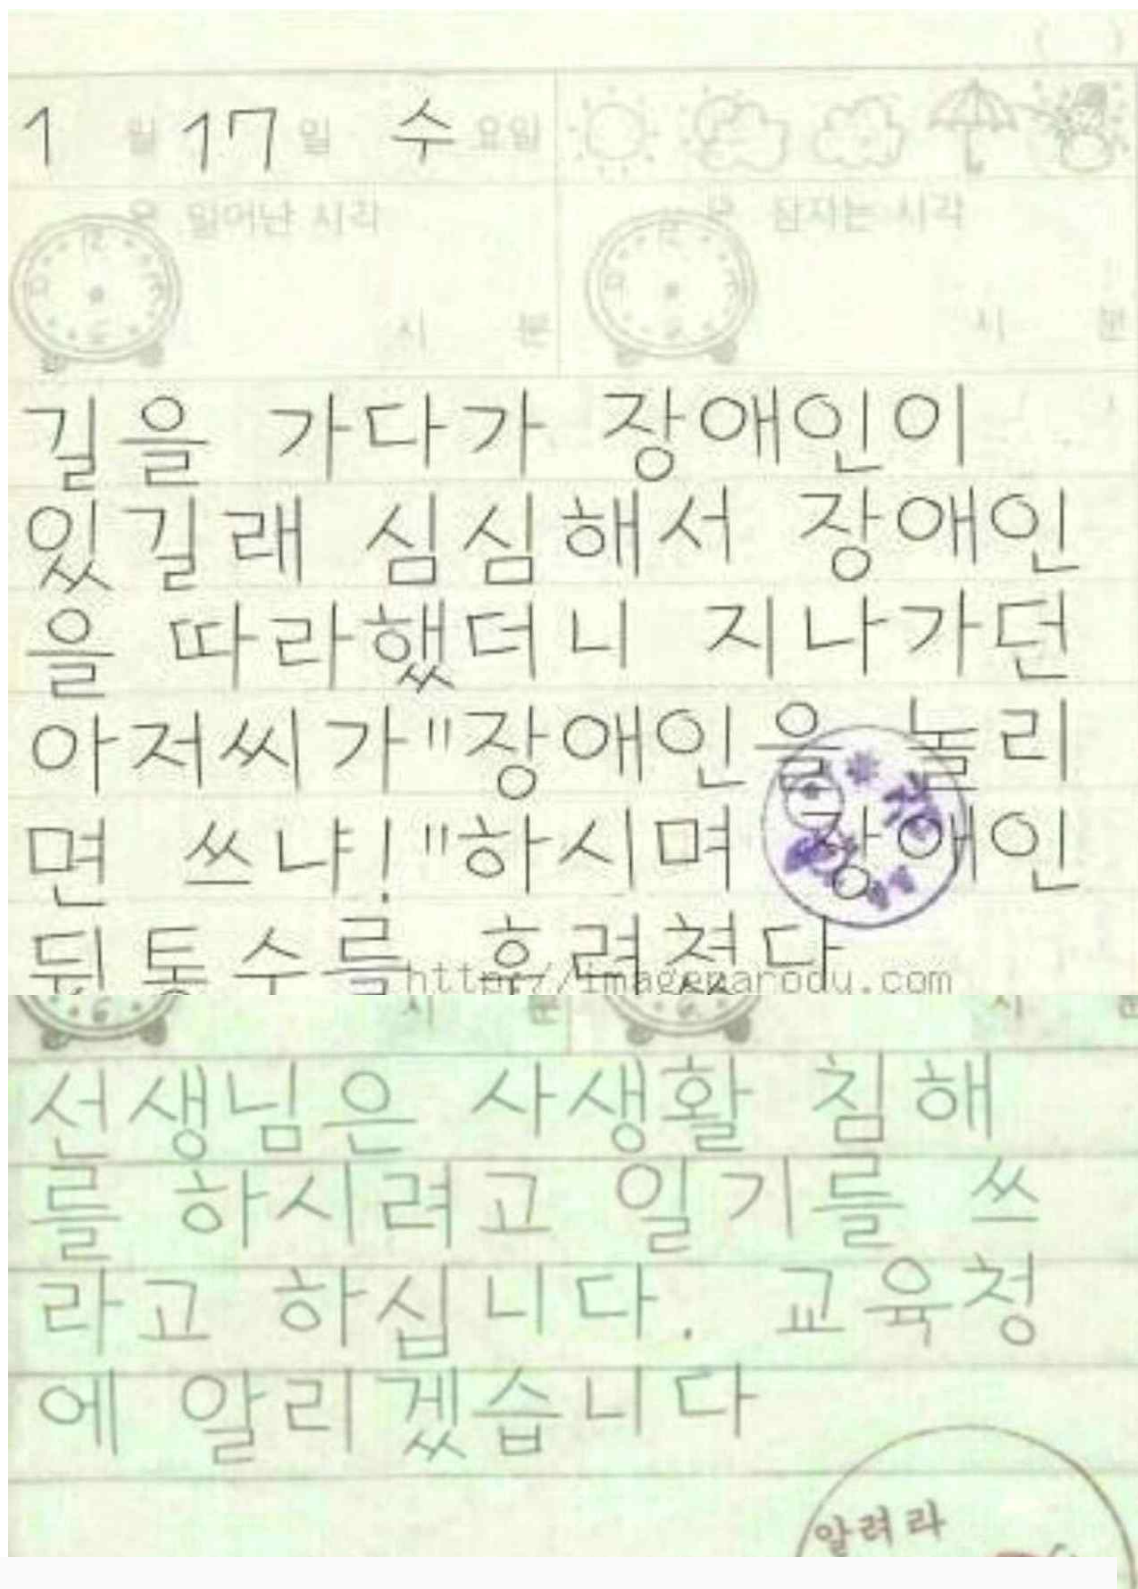 1 월 17 일 수 요일
일어난 시각 잠자는 시각
시 분 시 분
길을 가다가 장애인이
있길래 심심해서 장애인
을 따라했더니 지나가던
아저씨가"장애인을 놀리
면 쓰냐!"하시며 장애인
뒤통수를 후려쳤다
http://imageparody.com
시 분 시
선생님은 사생활 침해
를 하시려고 일기를 쓰
라고 하십니다. 교육청
에 알리겠습니다
알려라